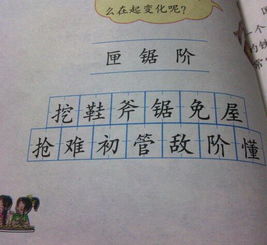 么在起变化呢？
匣 锯 阶
挖鞋斧锯免屋
抢难初管敌阶懂
一个